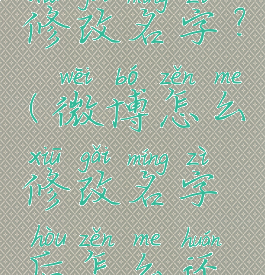 修改名字?
wēi bó zěn me
(微博怎么
xiū gǎi míng zì
修改名字
hòu zěn me huán
后怎么还